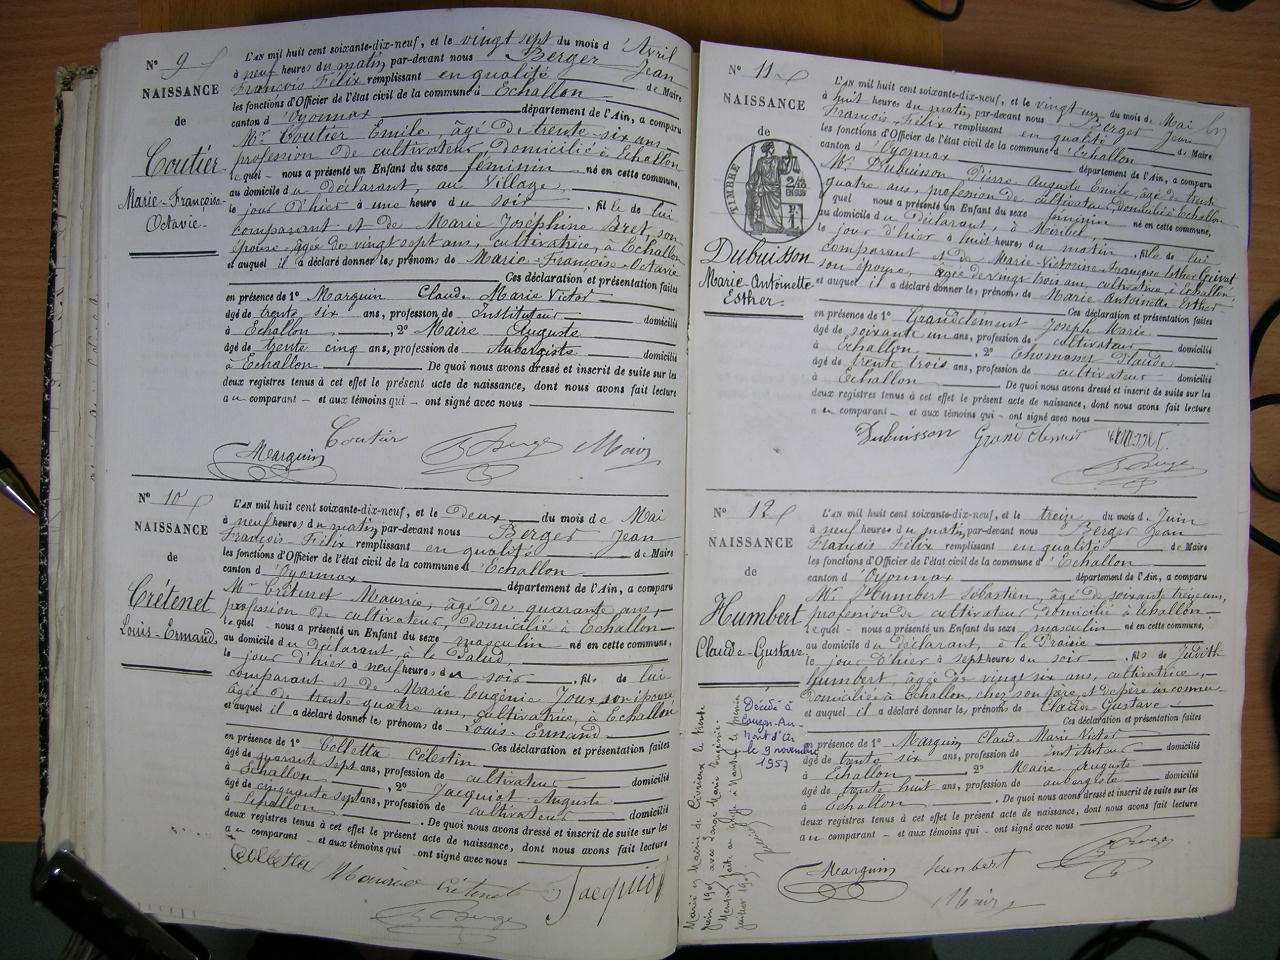 N° 9
NAISSANCE
de
Coutier
Marie-Françoise-
Octavie-
L'AN mil huit cent soixante-dix-neuf, et le vingt sept du mois d'Avril
à neuf heures du matin, par-devant nous Berger Jean
François Félix remplissant en qualité de Maire
les fonctions d'Officier de l'état civil de la commune d'Echallon
canton d'Oyonnax département de l'Ain, a comparu
Mr Coutier Emile, âgé de trente-six ans
profession de cultivateur domicilié à Echallon
lequel nous a présenté un Enfant du sexe féminin né en cette commune,
au domicile du déclarant, au Village,
le jour d'hier à une heure du soir, fille de lui
comparant et de Marie Joséphine Bret, son
épouse, âgée de vingt sept ans, cultivatrice, à Echallon
et auquel il a déclaré donner les prénoms de Marie-Françoise-Octavie
Ces déclaration et présentation faites
en présence de 1° Marquin Claude Marie Victor
âgé de trente six ans, profession de Instituteur domicilié
à Echallon, 2° Maire Auguste
âgé de trente cinq ans, profession de Aubergiste domicilié
à Echallon De quoi nous avons dressé et inscrit de suite sur les
deux registres tenus à cet effet le présent acte de naissance, dont nous avons fait lecture
au comparant – et aux témoins qui – ont signé avec nous
Coutier
Marquin Berger Maire
N° 10
NAISSANCE
de
Crétenet
Louis-Ermand
L'AN mil huit cent soixante-dix-neuf, et le Deux du mois de Mai
à neuf heures du matin, par-devant nous Berger Jean
François Félix remplissant en qualité de Maire
les fonctions d'Officier de l'état civil de la commune d'Echallon
canton d'Oyonnax département de l'Ain, a comparu
Mr Crétenet Maurice, âgé de quarante ans,
profession de cultivateur, domicilié à Echallon
lequel nous a présenté un Enfant du sexe masculin né en cette commune,
au domicile du déclarant, à le
le jour d'hier à neuf heures du soir, fils de lui
comparant et de Marie Eugénie Joux son épouse
âgée de trente quatre ans, cultivatrice, à Echallon
et auquel il a déclaré donner les prénoms de Louis-Ermand
Ces déclaration et présentation faites
en présence de 1° Colletta Célestin
âgé de quarante sept ans, profession de cultivateur domicilié
à Echallon, 2° Jacquiot Auguste
âgé de cinquante sept ans, profession de cultivateur domicilié
à Echallon De quoi nous avons dressé et inscrit de suite sur les
deux registres tenus à cet effet le présent acte de naissance, dont nous avons fait lecture
au comparant – et aux témoins qui ont signé avec nous
Colletta Maurice Crétenet Jacquiot
Berger
N° 11
NAISSANCE
de
TIMBRE
Dubuisson
Marie-Antoinette
Esther-
L'AN mil huit cent soixante-dix-neuf, et le vingt un du mois de Mai
à huit heures du matin, par-devant nous Berger Jean
François-Félix remplissant en qualité de Maire
les fonctions d'Officier de l'état civil de la commune d'Echallon
canton d'Oyonnax département de l'Ain, a comparu
Mr Dubuisson Pierre Auguste Emile, âgé de trente
quatre ans, profession de cultivateur, domicilié à Echallon
lequel nous a présenté un Enfant du sexe féminin né en cette commune,
au domicile du déclarant, à
le jour d'hier à huit heures du matin, fille de lui
comparant et de Marie-Victorine-Françoise Esther
son épouse, âgée de vingt trois ans, cultivatrice à Echallon,
et auquel il a déclaré donner les prénoms de Marie Antoinette Esther
Ces déclaration et présentation faites
en présence de 1° Grandclement Joseph Marie
âgé de soixante un ans, profession de cultivateur domicilié
à Echallon, 2° Claude
âgé de trente trois ans, profession de cultivateur domicilié
à Echallon De quoi nous avons dressé et inscrit de suite sur les
deux registres tenus à cet effet le présent acte de naissance, dont nous avons fait lecture
au comparant – et aux témoins qui – ont signé avec nous
Dubuisson Grandclement
Berger
N° 12
NAISSANCE
de
Humbert
Claude-Gustave
L'AN mil huit cent soixante-dix-neuf, et le treize du mois de Juin
à neuf heures du matin, par-devant nous Berger Jean
François Félix remplissant en qualité de Maire
les fonctions d'Officier de l'état civil de la commune d'Echallon
canton d'Oyonnax département de l'Ain, a comparu
Mr Humbert Sébastien, âgé de soixante treize ans,
profession de cultivateur domicilié à Echallon
lequel nous a présenté un Enfant du sexe masculin né en cette commune,
au domicile du déclarant, à la Prairie
le jour d'hier à sept heures du soir, fils de Judith
Humbert, âgée de vingt six ans, cultivatrice,
domiciliée à Echallon, chez son père, et de père inconnu
et auquel il a déclaré donner les prénoms de Claude Gustave
Ces déclaration et présentation faites
en présence de 1° Marquin Claude Marie Victor
âgé de trente six ans, profession de instituteur domicilié
à Echallon, 2° Maire Auguste
âgé de trente huit ans, profession de aubergiste domicilié
à Echallon De quoi nous avons dressé et inscrit de suite sur les
deux registres tenus à cet effet le présent acte de naissance, dont nous avons fait lecture
au comparant – et aux témoins qui – ont signé avec nous
Marquin Humbert Berger
Maire
Décédé à
Couzon-Au-
Mont d'Or
le 9 novembre
1957
Marié à Mairie de Civrieux le trente
Juin 190 avec Marie Eugénie
Mention faite au greffe à Nantua le premier
juillet 190